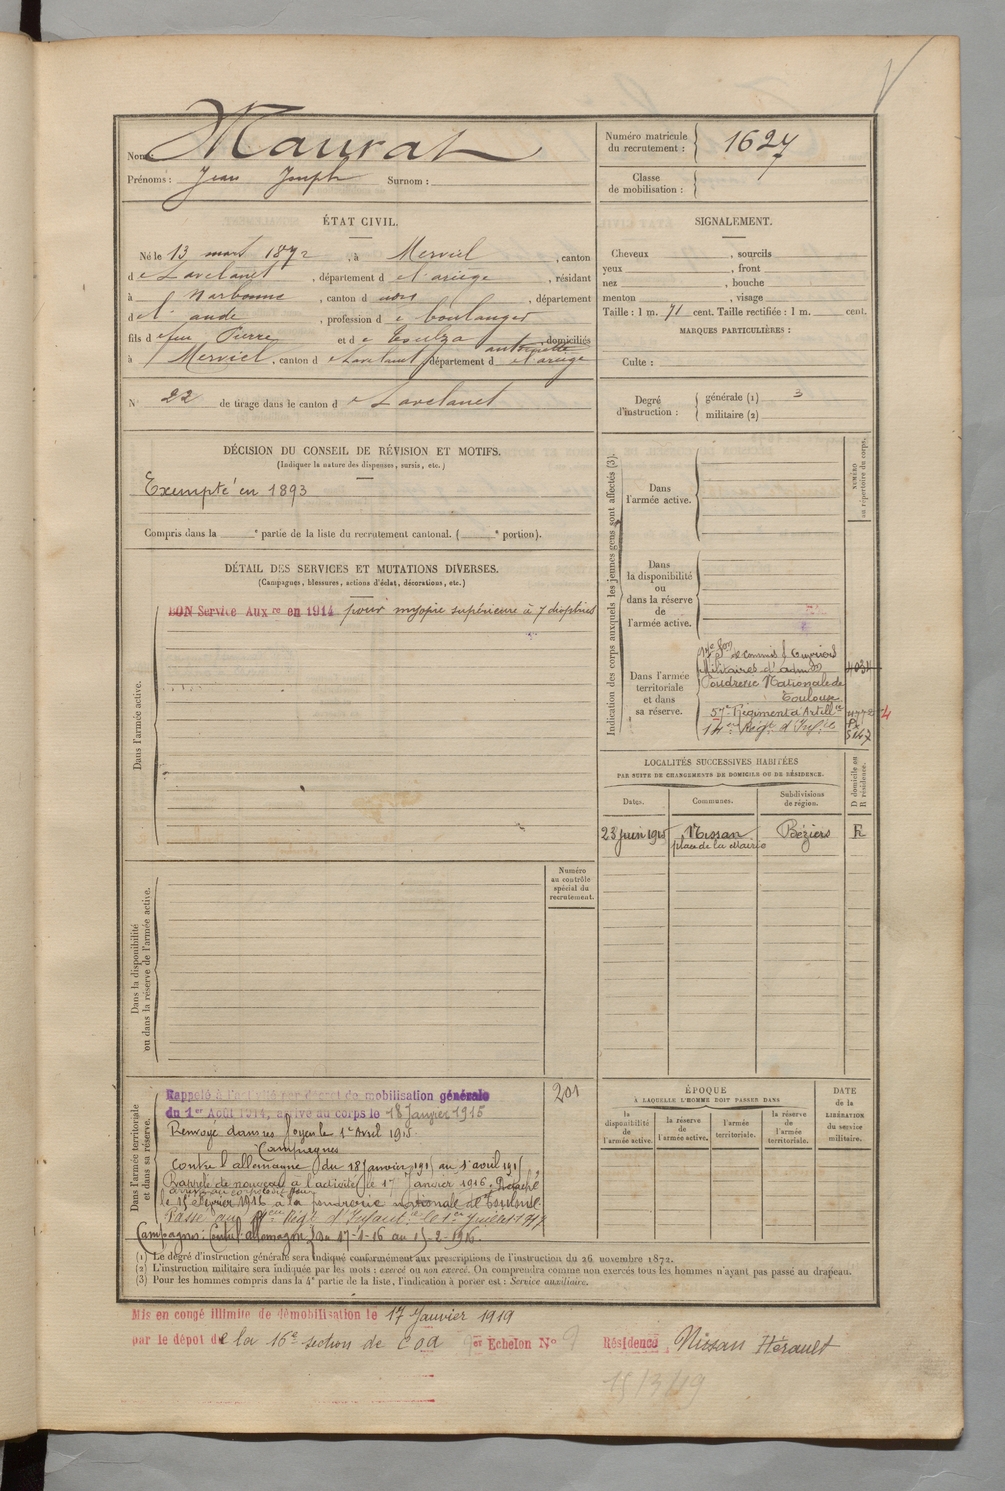 Nom : Maurat
Prénoms : Jean Joseph Surnom :
Numéro matricule du recrutement : 1627
Classe de mobilisation :
ÉTAT CIVIL.
Né le 13 mars 1872, à Merviel, canton
de Lavelanet, département de l'ariège, résidant
à Narbonne, canton d, département
de l'aude, profession de boulanger
fils de feu Pierre et de antoinette domiciliés
à Merviel, canton de Lavelanet, département de l'ariège
N° 22 de tirage dans le canton de Lavelanet
SIGNALEMENT.
Cheveux, sourcils
yeux, front
nez, bouche
menton, visage
Taille : 1 m. 71 cent. Taille rectifiée : 1 m. cent.
MARQUES PARTICULIÈRES :
Culte :
Degré d'instruction : générale (1) 3
militaire (2)
DÉCISION DU CONSEIL DE RÉVISION ET MOTIFS.
(Indiquer la nature des dispenses, sursis, etc.)
Exempté en 1893
Compris dans la e partie de la liste du recrutement cantonal. ( e portion).
DÉTAIL DES SERVICES ET MUTATIONS DIVERSES.
(Campagnes, blessures, actions d'éclat, décorations, etc.)
BON Service Auxre en 1914 pour myopie supérieure à 7 dioptries
Dans l'armée active.
Dans la disponibilité ou dans la réserve de l'armée active.
Numéro au contrôle spécial du recrutement.
201
Dans l'armée territoriale et dans sa réserve.
Rappelé à l'activité par décret de mobilisation générale
du 1er Août 1914, arrivé au corps le 18 Janvier 1915
Renvoyé dans ses foyers le 1er Avril 1915.
Campagnes
Contre l'allemagne du 18 janvier 1915 au 1er avril 1915
Rappelé de nouveau à l'activité le 17 Janvier 1916. Détaché
arrivé au corps dit jour
le 15 février 1916 à la poudrerie nationale de Toulouse.
Passé au 14eme Régt d'Infantie le 1er juillet 1917
Campagnes : Contre l'allemagne du 17-1-16 au 15-2-1916.
Indication des corps auxquels les jeunes gens sont affectés (3).
NUMÉRO au répertoire du corps.
Dans l'armée active.
Dans la disponibilité ou dans la réserve de l'armée active.
Dans l'armée territoriale et dans sa réserve.
Son de commis & ouvriers
militaires d'admon
Poudrerie Nationale de
Toulouse
57e Régiment d'Artillie
14eme Régt d'Infie
LOCALITÉS SUCCESSIVES HABITÉES
PAR SUITE DE CHANGEMENTS DE DOMICILE OU DE RÉSIDENCE.
D domicile ou R résidence.
Dates. Communes. Subdivisions de région.
23 juin 1915 Nissan Béziers R
place de la Mairie
ÉPOQUE
À LAQUELLE L'HOMME DOIT PASSER DANS
la disponibilité de l'armée active. la réserve de l'armée active. l'armée territoriale. la réserve de l'armée territoriale.
DATE de la LIBÉRATION du service militaire.
(1) Le degré d'instruction générale sera indiqué conformément aux prescriptions de l'instruction du 26 novembre 1872.
(2) L'instruction militaire sera indiquée par les mots : exercé ou non exercé. On comprendra comme non exercés tous les hommes n'ayant pas passé au drapeau.
(3) Pour les hommes compris dans la 4e partie de la liste, l'indication à porter est : Service auxiliaire.
Mis en congé illimité de démobilisation le 17 Janvier 1919
par le dépot de la 16e section de COA Echelon N° Résidence Nissan Hérault